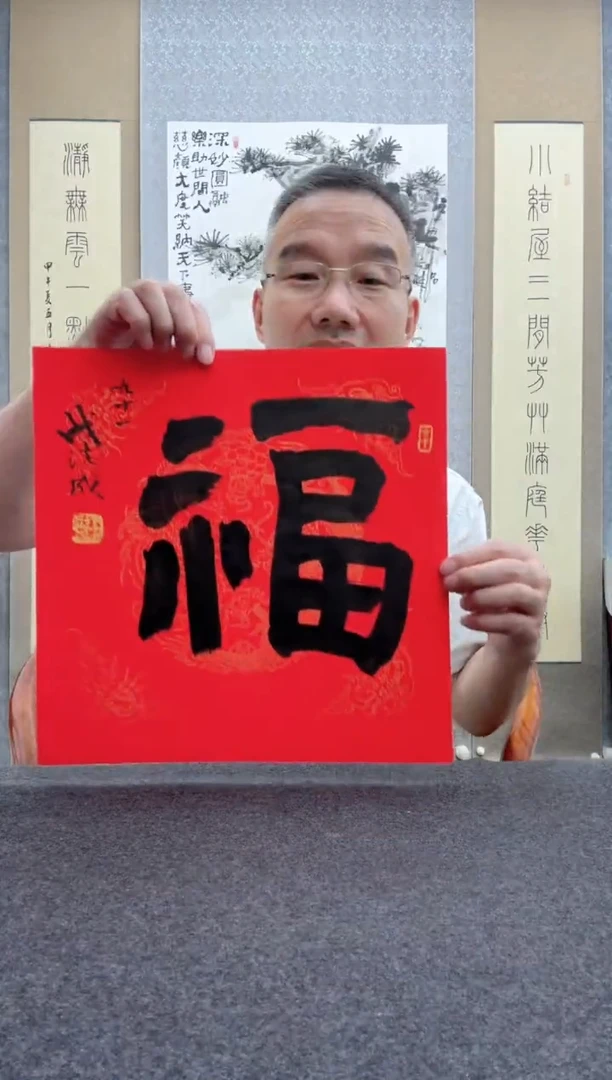 福
深妙圓融
樂助世間人
慈顏大度笑納天下事
小結屋三間芳艸滿庭華
瀞無雲一點
甲午夏五月